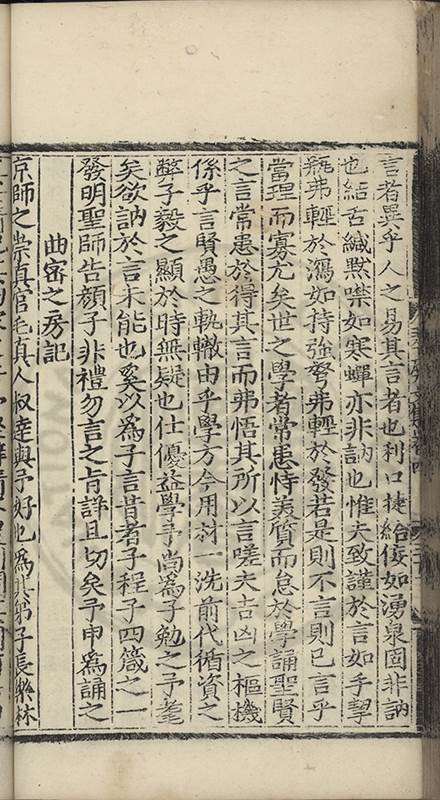 言者異乎人之易其言者也利口捷給佞如湧泉固非訥
也結舌緘默噤如寒蟬亦非訥也惟夫致謹於言如手挈
瓶弗輕於瀉如持強弩弗輕於發若是則不言則已言乎
當理而寡尤矣世之學者常患恃美質而怠於學誦聖賢
之言常患於得其言而弗悟其所以言嗟夫吉凶之樞機
係乎言賢愚之軌轍由乎學方今用材一洗前代循資之
弊子毅之顯於時無疑也仕優益學予尚為子勉之予耄
矣欲訥於言未能也奚以為子言昔者子程子四箴之一
發明聖師告顏子非禮勿言之旨詳且切矣予申為誦之
曲密之房記
京師之崇真宮毛真人叔達與予好也為其弟子長樂林